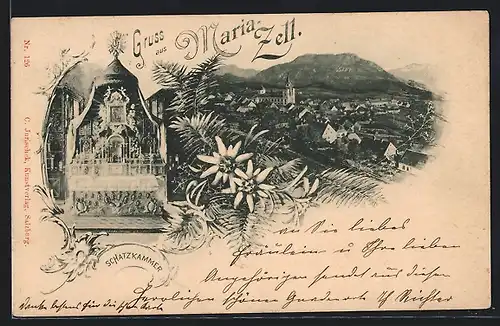 Gruss aus Maria-Zell.
Nr. 126
C. Jurischek, Kunstverlag, Salzburg.
SCHATZKAMMER
an Sie liebes
Fräulein u Ihre lieben
Angehörigen sendet aus diesen
herrlichen schönen Gnadenort Richter
Danke bestens für die schönen Karte